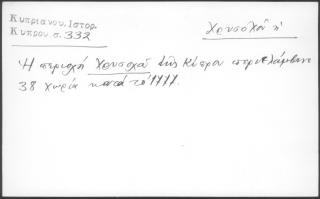 Κυπριανού, Ιστορ.
Κύπρου σ. 332
Χρυσοχού ή
Ἡ περιοχή Χρυσοχού τῆς Κύπρου περιελάμβανε
38 χωρία κατά τό 1777.